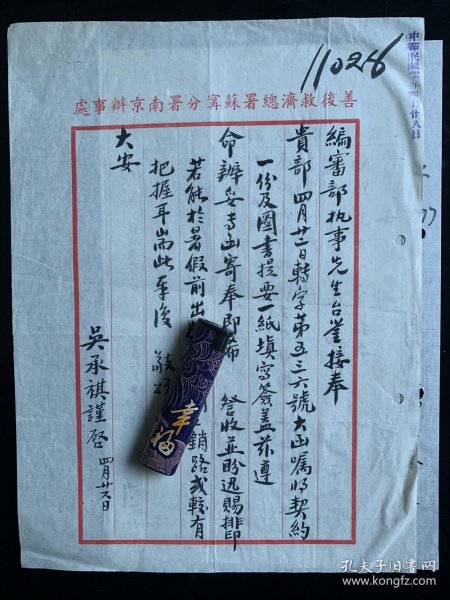 中華民國卅六年四月廿八日
善後救濟總署蘇甯分署南京辦事處
編審部執事先生台鑒接奉
貴部四月廿二日轉字第五三六號大函囑將契約
一份及圖書提要一紙填寫簽蓋茲遵
命辦妥專函寄奉即希 詧收並盼迅賜排印
若能於暑假前出 銷路或較有
把握耳耑此奉復 敬頌
大安
吳承祺謹啓 四月廿六日
幸福
孔夫子旧书网
www.kongfz.com